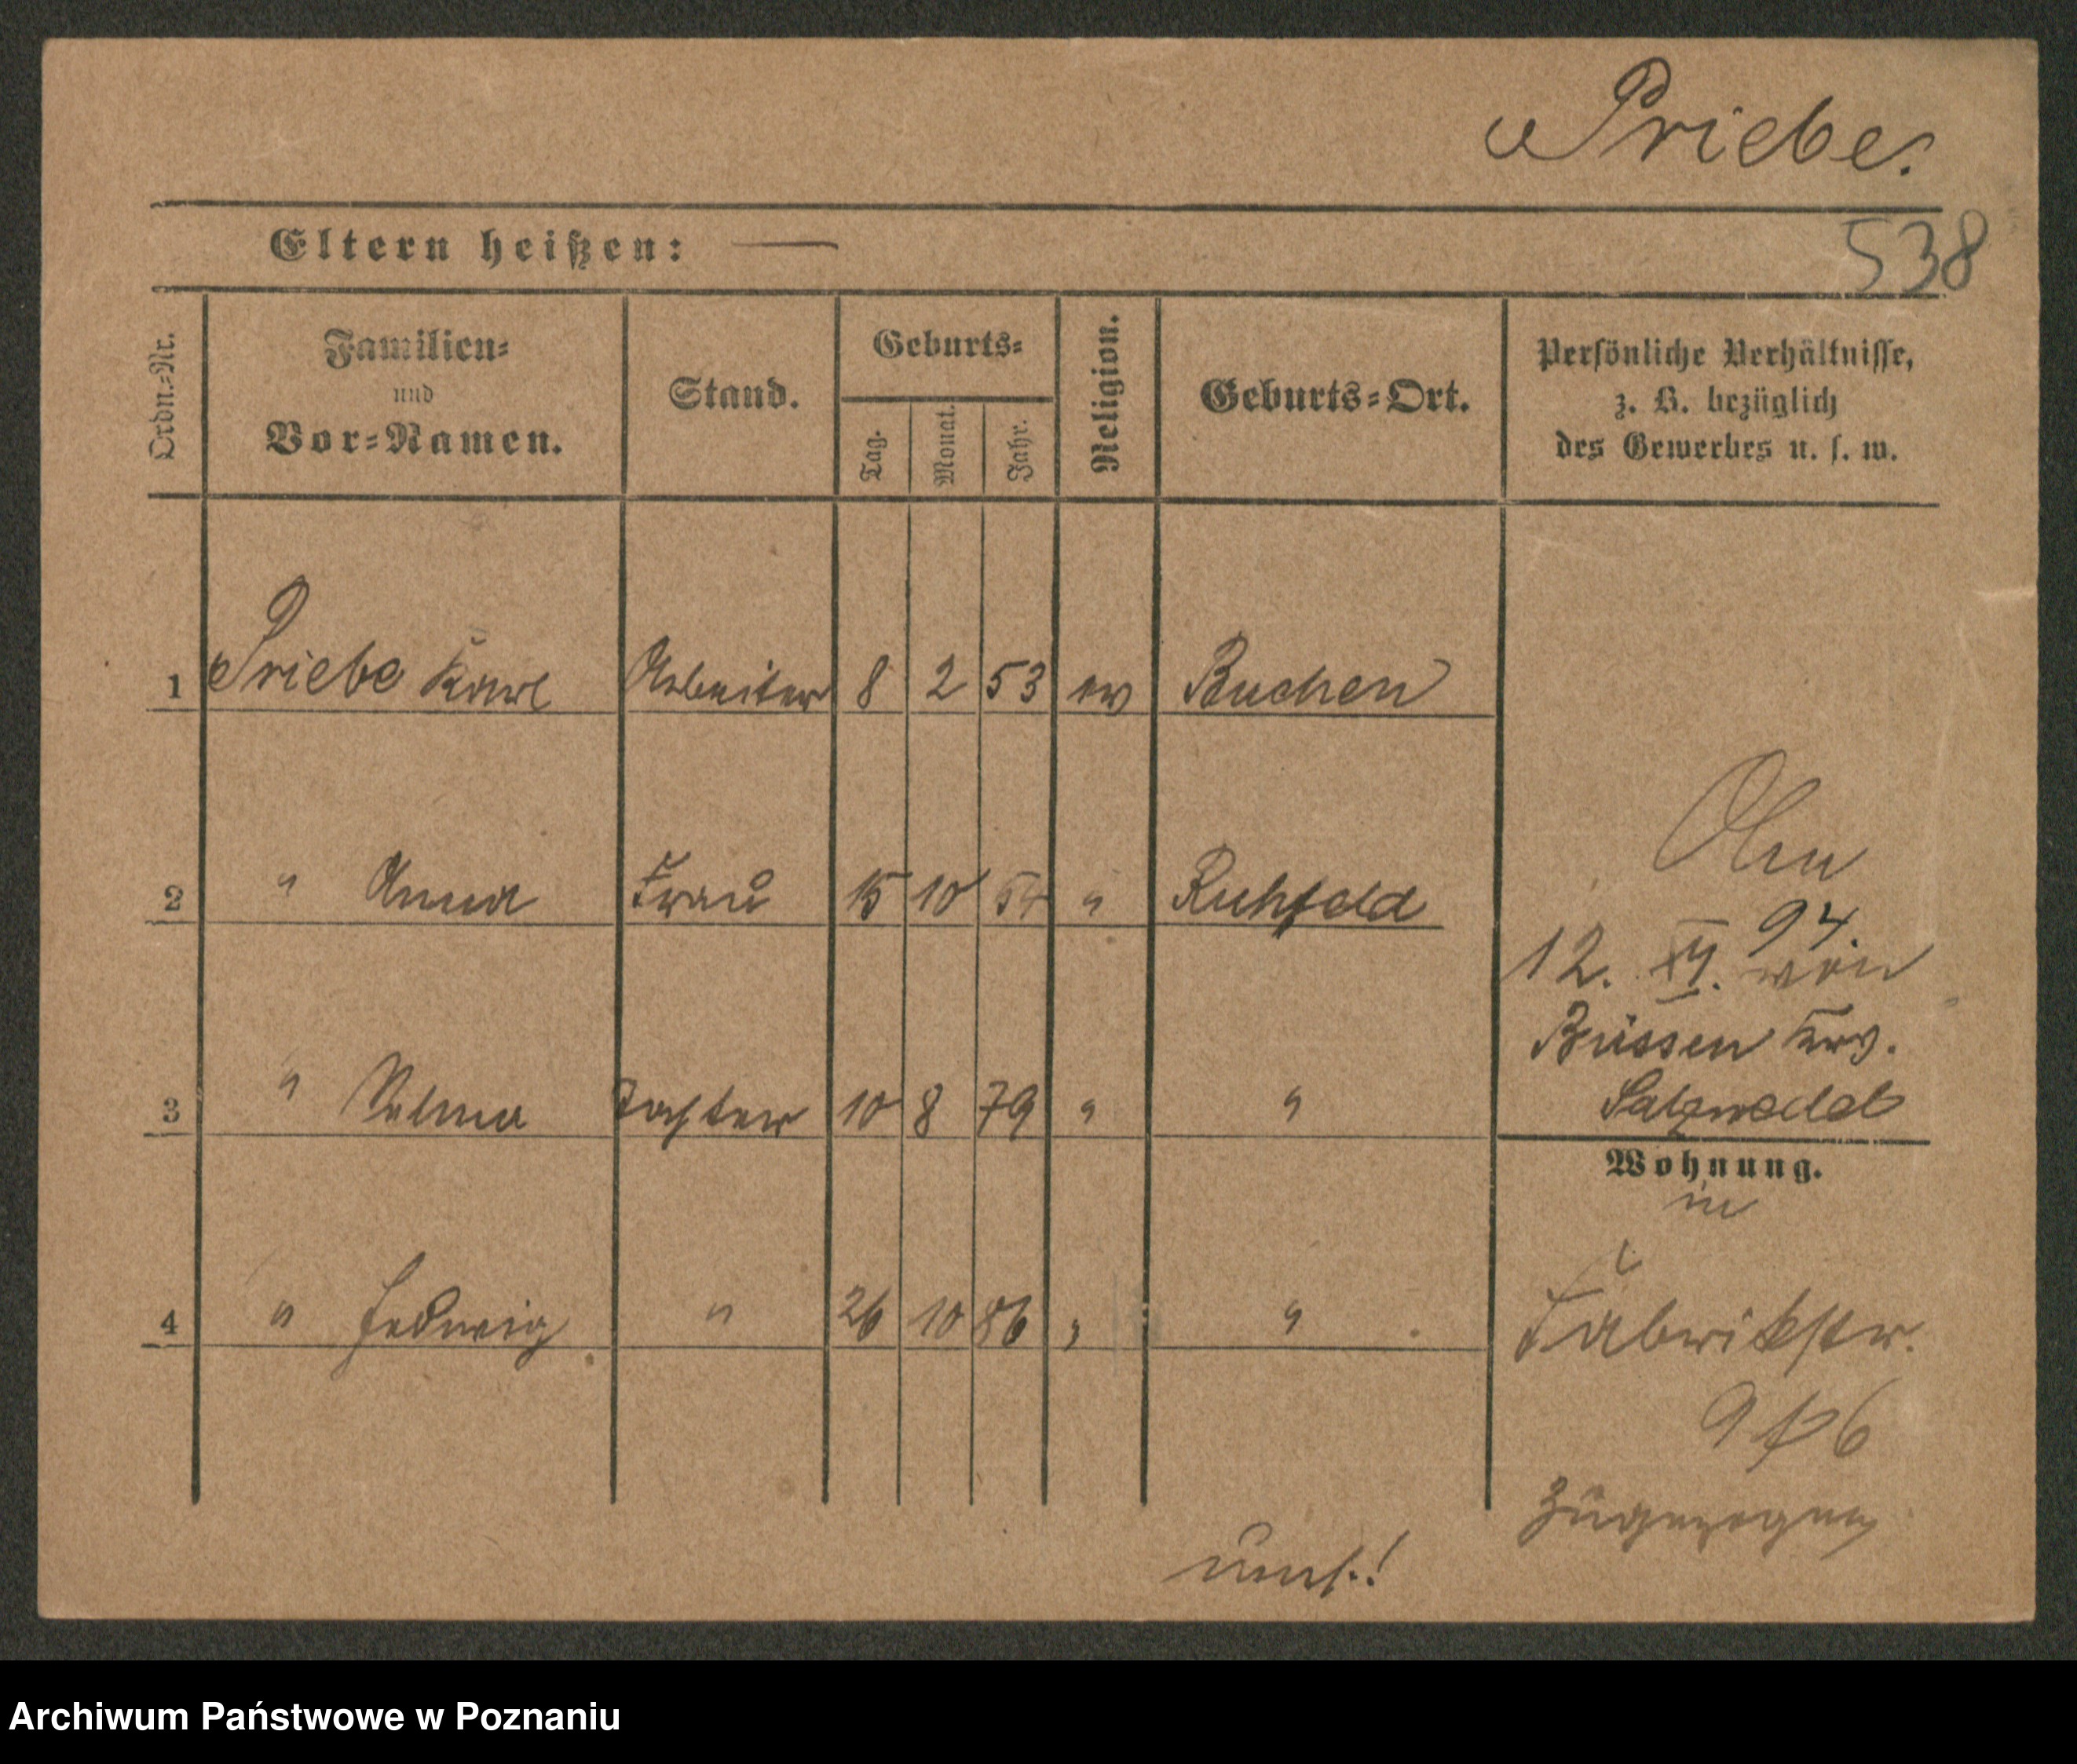 Priebe.
538
Eltern heißen: —
Ordn.-Nr.
Familien-
und
Vor-Namen.
Stand.
Geburts-
Tag.
Monat.
Jahr.
Religion.
Geburts-Ort.
Persönliche Verhältnisse,
z. B. bezüglich
des Gewerbes u. s. w.
1 Priebe Karl Arbeiter 8 2 53 ev Buchen
2 " Anna Frau 15 10 54 " Ruhfeld
3 " Selma Tochter 10 8 79 " "
4 " Hedwig " 26 10 86 " "
94.
12. XI. von
Büssen Krs.
Salzwedel
Wohnung.
in
Fabrikstr.
9 6
zugezogen
umst.!
Archiwum Państwowe w Poznaniu